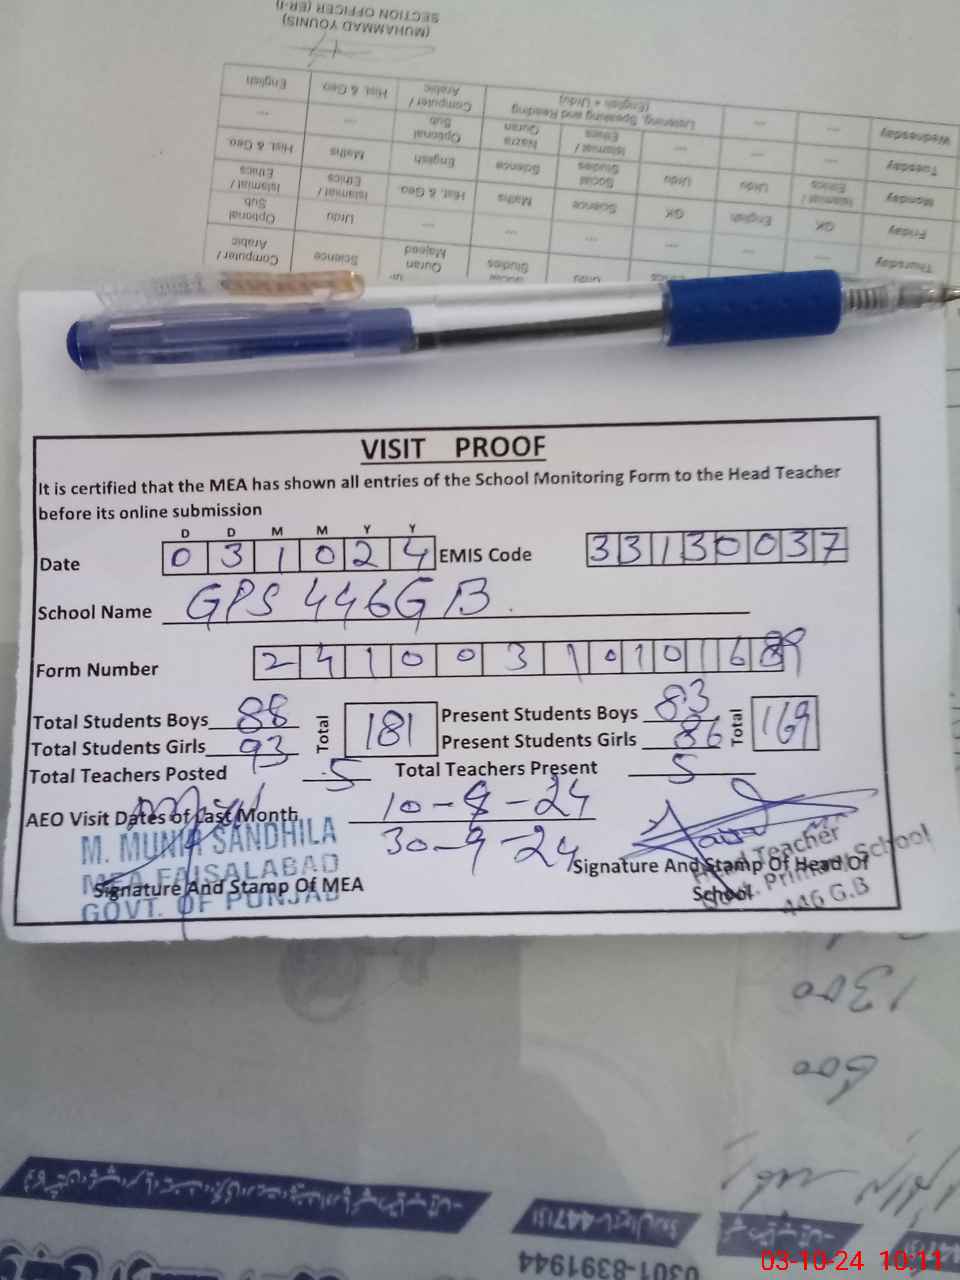 (MUHAMMAD YOUNIS)
SECTION OFFICER (ER-I)
Wednesday --- --- --- Listening, Speaking and Reading (English + Urdu) Computer / Arabic Hist. & Geo. English
Tuesday --- --- --- Islamiat / Ethics Nazra Quran Optional Sub --- ---
Monday Islamiat / Ethics Urdu Urdu Social Studies Science English Maths Hist. & Geo.
Friday GK English GK Science Maths Hist. & Geo. Islamiat / Ethics Islamiat / Ethics
--- --- --- --- --- --- Urdu Optional Sub
Thursday Urdu Social Studies Quran Majeed Science Computer / Arabic
VISIT PROOF
It is certified that the MEA has shown all entries of the School Monitoring Form to the Head Teacher
before its online submission
D D M M Y Y
Date 0 3 1 0 2 4 EMIS Code 3 3 1 3 0 0 3 7
School Name GPS 446 GB
Form Number 2 4 1 0 0 3 1 0 1 0 1 6
Total Students Boys 88 Total 181 Present Students Boys 83 Total 169
Total Students Girls 93 Present Students Girls 86
Total Teachers Posted 5 Total Teachers Present 5
AEO Visit Dates of Last Month 10-9-24
30-9-24
M. MUNIR SANDHILA
MEA FAISALABAD
GOVT. OF PUNJAB
Signature And Stamp Of MEA
Signature And Stamp Of Head Of
School
Head Teacher
Govt. Primary School
446 G.B
1300
600
0301-8391944
03-10-24 10:11